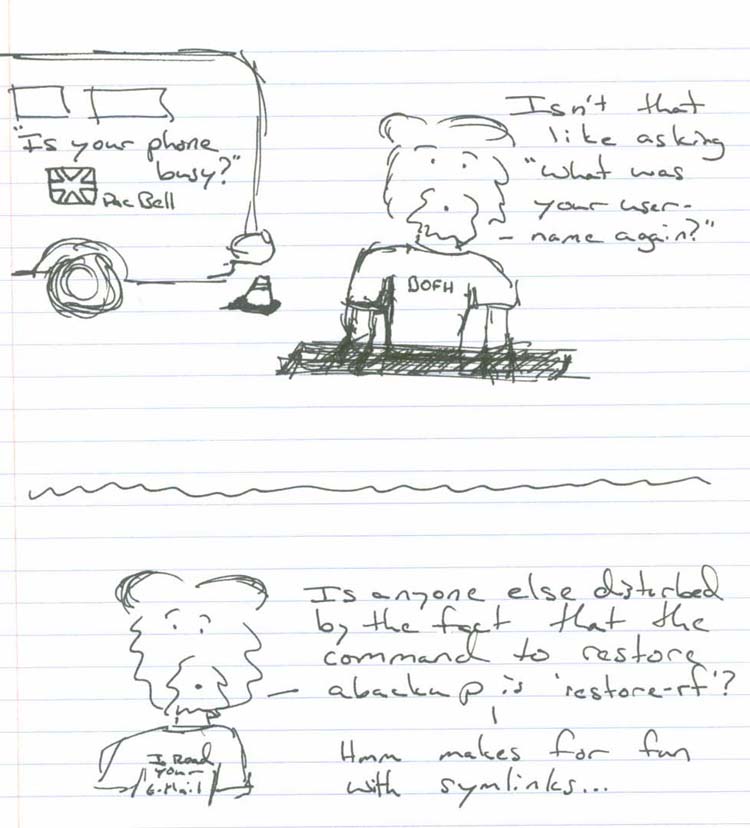 "Is your phone
busy?"
Pac Bell
Isn't that
like asking
"What was
your user-
name again?"
BOFH
Is anyone else disturbed
by the fact that the
command to restore
a backup is 'restore -rf'?
Hmm makes for fun
with symlinks...
I Read
your
E-Mail